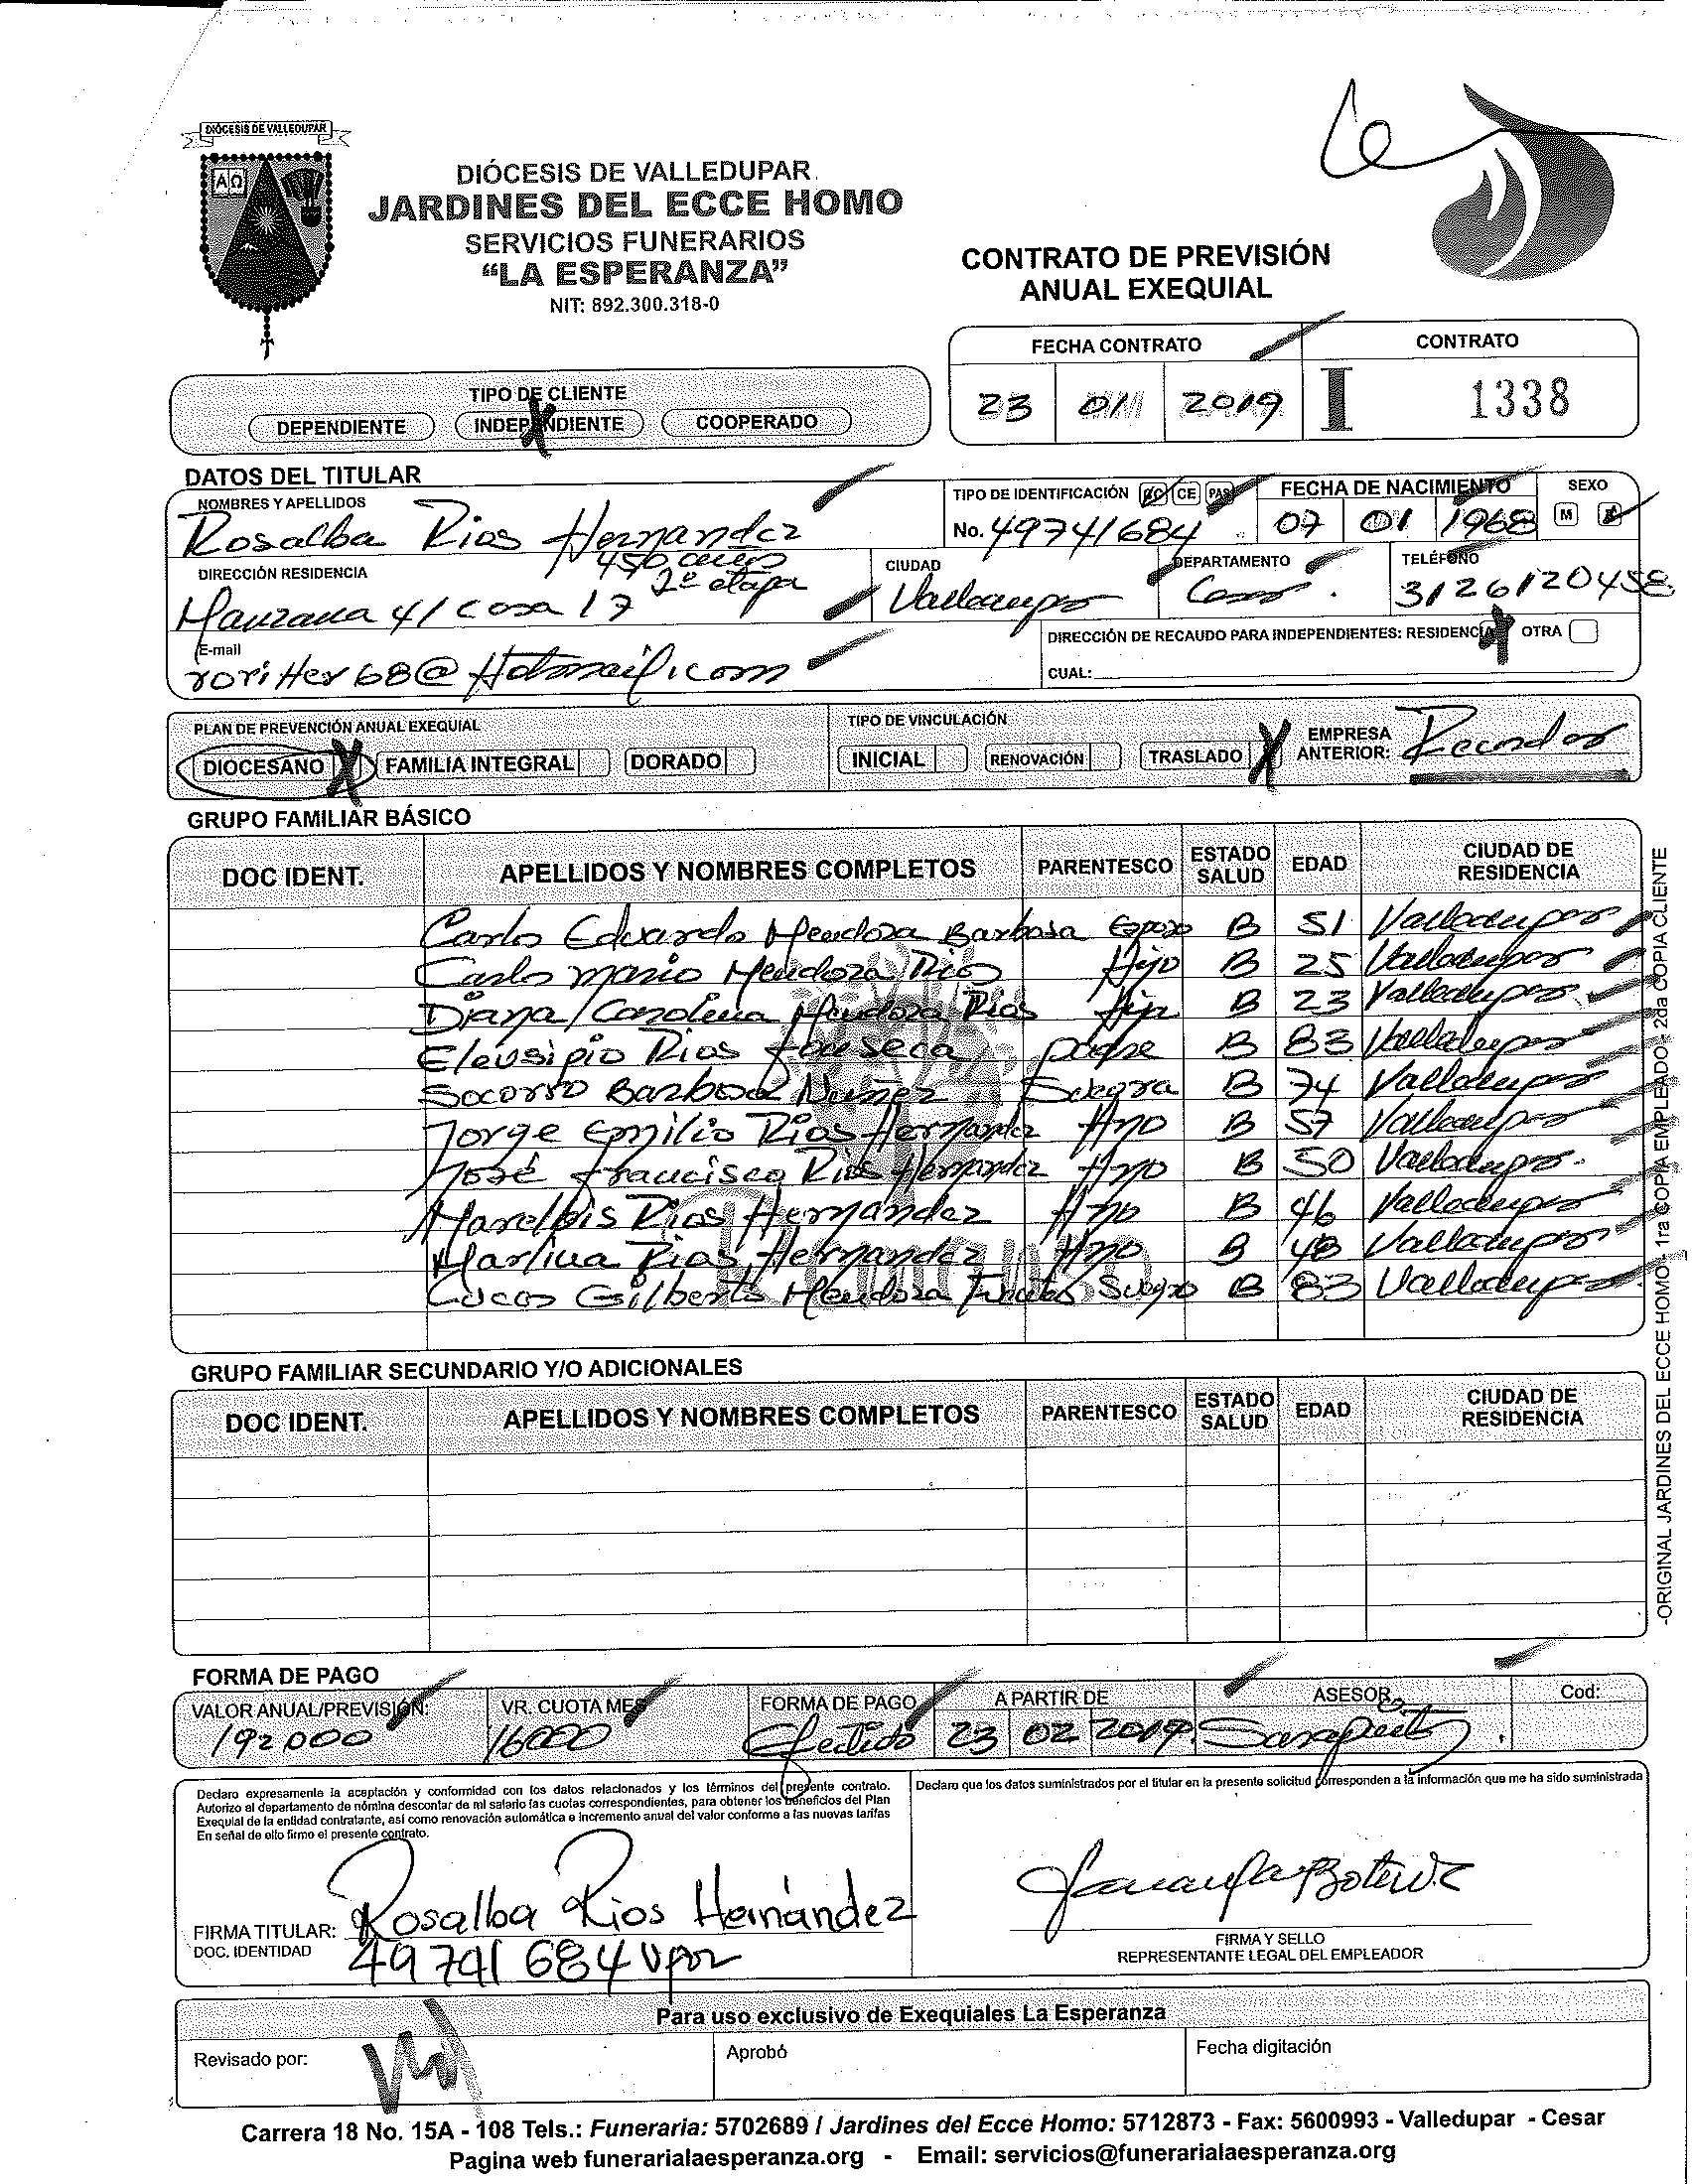 DIÓCESIS DE VALLEDUPAR
DIÓCESIS DE VALLEDUPAR
JARDINES DEL ECCE HOMO
SERVICIOS FUNERARIOS
“LA ESPERANZA”
NIT: 892.300.318-0
CONTRATO DE PREVISIÓN
ANUAL EXEQUIAL
FECHA CONTRATO CONTRATO
23 01 2019 I 1338
TIPO DE CLIENTE
DEPENDIENTE INDEPENDIENTE X COOPERADO
DATOS DEL TITULAR
NOMBRES Y APELLIDOS
Rosalba Rios Hernandez
TIPO DE IDENTIFICACIÓN CC CE PAS
No. 49741684
FECHA DE NACIMIENTO
07 01 1968
SEXO
M F
DIRECCIÓN RESIDENCIA
450 años
2º etapa
Manzana 41 casa 17
CIUDAD
Valledupar
DEPARTAMENTO
Cesar.
TELÉFONO
3126120458
E-mail
roriHer68@Hotmail.com
DIRECCIÓN DE RECAUDO PARA INDEPENDIENTES: RESIDENCIA X OTRA
CUAL:
PLAN DE PREVENCIÓN ANUAL EXEQUIAL
DIOCESANO X FAMILIA INTEGRAL DORADO
TIPO DE VINCULACIÓN
INICIAL RENOVACIÓN TRASLADO X
EMPRESA ANTERIOR: Recordar
GRUPO FAMILIAR BÁSICO
DOC IDENT. APELLIDOS Y NOMBRES COMPLETOS PARENTESCO ESTADO SALUD EDAD CIUDAD DE RESIDENCIA
Carlos Eduardo Mendoza Barbosa Esposo B 51 Valledupar
Carlos Mario Mendoza Rios Hijo B 25 Valledupar
Diana Carolina Mendoza Rios Hija B 23 Valledupar
Eleusipio Rios Fonseca padre B 83 Valledupar
Socorro Barbosa Nuñez Suegra B 74 Valledupar
Jorge Emilio Rios Hernandez Hno B 57 Valledupar
José Francisco Rios Hernandez Hno B 50 Valledupar.
Marelbis Rios Hernandez Hno B 46 Valledupar
Marlina Rios Hernandez Hno B 48 Valledupar
Lucas Gilberto Mendoza Fuentes Suegro B 83 Valledupar
GRUPO FAMILIAR SECUNDARIO Y/O ADICIONALES
DOC IDENT. APELLIDOS Y NOMBRES COMPLETOS PARENTESCO ESTADO SALUD EDAD CIUDAD DE RESIDENCIA
-ORIGINAL JARDINES DEL ECCE HOMO - 1ra COPIA EMPLEADO - 2da COPIA CLIENTE
FORMA DE PAGO
VALOR ANUAL/PREVISIÓN: VR. CUOTA MES FORMA DE PAGO A PARTIR DE ASESOR Cod:
192000 16000 Efectivo 23 02 2019.
Declaro expresamente la aceptación y conformidad con los datos relacionados y los términos del presente contrato.
Autorizo al departamento de nómina descontar de mi salario las cuotas correspondientes, para obtener los beneficios del Plan
Exequial de la entidad contratante, así como renovación automática e incremento anual del valor conforme a las nuevas tarifas
En señal de ello firmo el presente contrato.
Declaro que los datos suministrados por el titular en la presente solicitud corresponden a la información que me ha sido suministrada
FIRMA TITULAR: Rosalba Rios Hernández
DOC. IDENTIDAD 49741684 Vpar
FIRMA Y SELLO
REPRESENTANTE LEGAL DEL EMPLEADOR
Para uso exclusivo de Exequiales La Esperanza
Revisado por: Aprobó Fecha digitación
Carrera 18 No. 15A - 108 Tels.: Funeraria: 5702689 / Jardines del Ecce Homo: 5712873 - Fax: 5600993 - Valledupar - Cesar
Pagina web funerarialaesperanza.org - Email: servicios@funerarialaesperanza.org